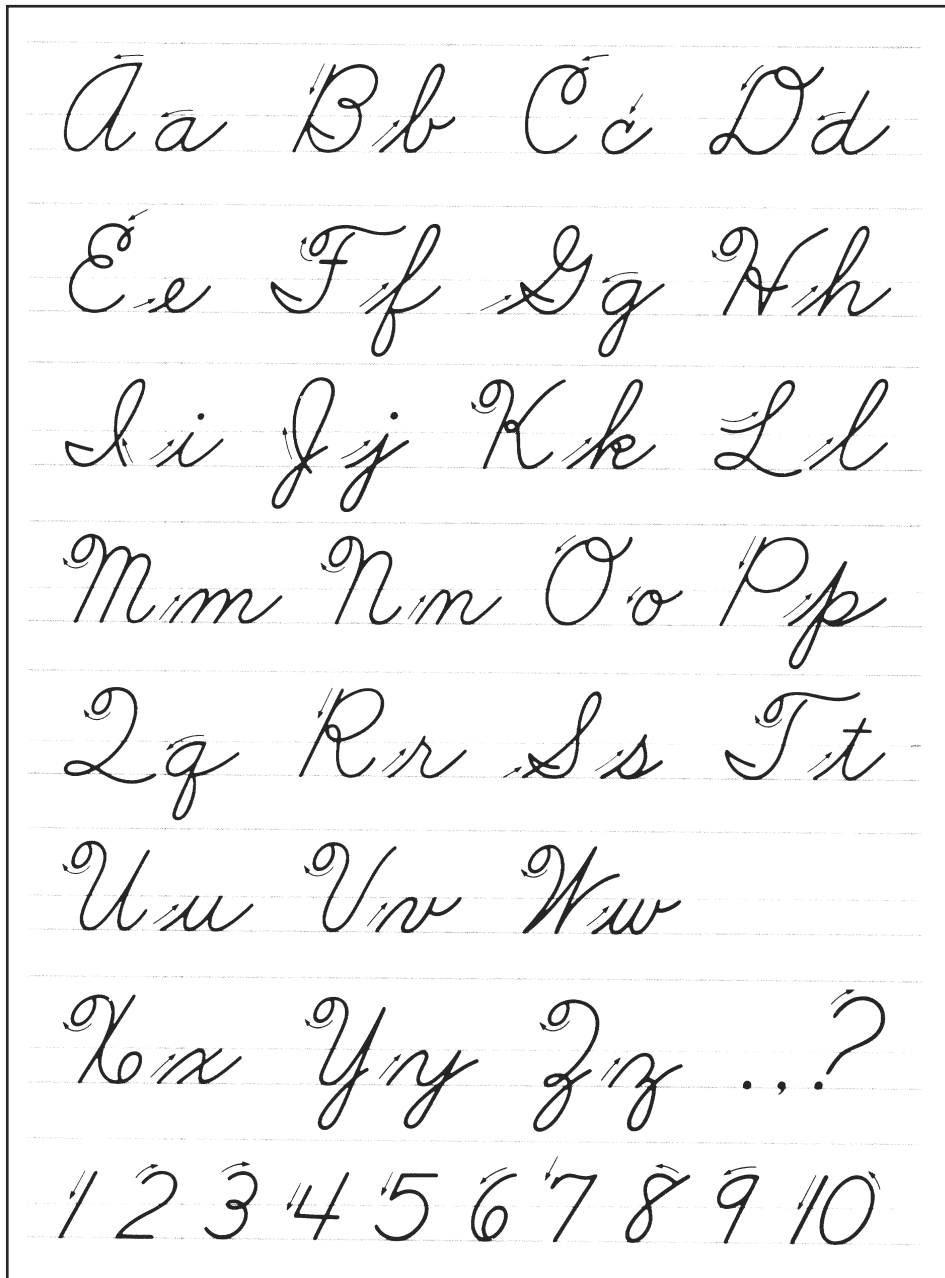 Aa Bb Cc Dd
Ee Ff Gg Hh
Ii Jj Kk Ll
Mm Nn Oo Pp
Qq Rr Ss Tt
Uu Vv Ww
Xx Yy Zz . , . ?
1 2 3 4 5 6 7 8 9 10